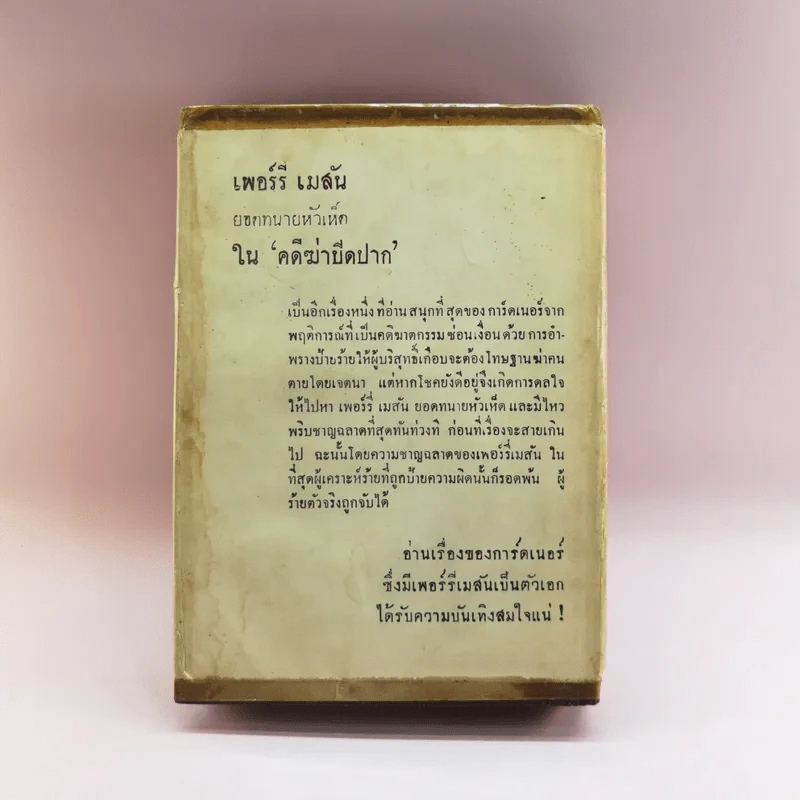 เพอร์รี่ เมสัน
ยอดทนายหัวเห็ด
ใน ‘คดีฆ่าปิดปาก’
เป็นอีกเรื่องหนึ่ง ที่อ่าน สนุกที่ สุดของ การ์ดเนอร์จาก
พฤติการณ์ที่ เป็นคดีฆาตกรรม ซ่อนเงื่อน ด้วย การอำ-
พรางป้ายร้ายให้ผู้บริสุทธิ์เกือบจะต้องโทษฐานฆ่าคน
ตายโดยเจตนา แต่หากโชคยังดีอยู่จึงเกิดการดลใจ
ให้ไปหา เพอร์รี่ เมสัน ยอดทนายหัวเห็ด และมีไหว
พริบชาญฉลาดที่สุดทันท่วงที ก่อนที่เรื่องจะสายเกิน
ไป ฉะนั้นโดยความชาญฉลาดของเพอร์รี่เมสัน ใน
ที่สุดผู้เคราะห์ร้ายที่ถูกป้ายความผิดนั้นก็รอดพ้น ผู้
ร้ายตัวจริงถูกจับได้
อ่านเรื่องของการ์ดเนอร์
ซึ่งมีเพอร์รี่เมสันเป็นตัวเอก
ได้รับความบันเทิงสมใจแน่ !